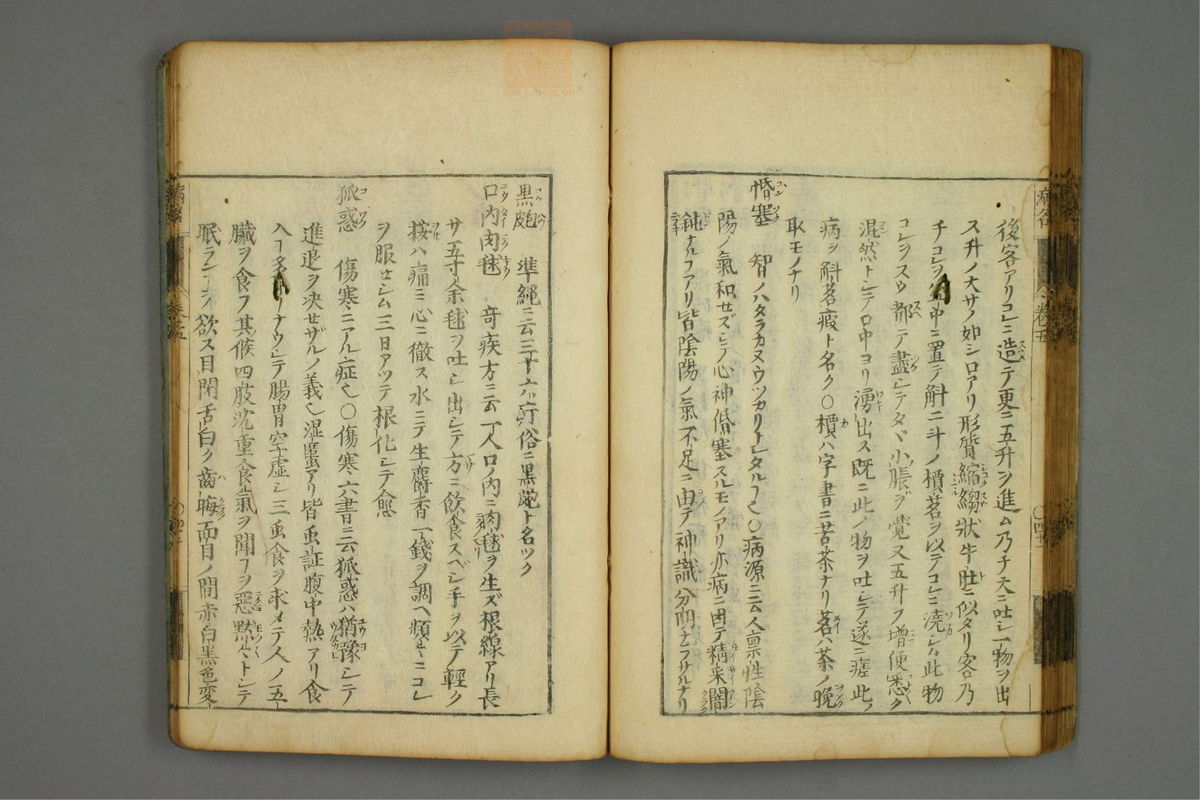 後客アリコレニ造テ更ニ五升ヲ進ム乃チ大ニ吐シ一物ヲ出
ス升ノ大サノ如シロアリ形質縮縐狀牛肚ニ似タリ客乃
チコレヲ 中ニ置テ斛二斗ノ檟茗ヲ以テコレニ澆シム此物
コレヲスウ都テ盡シテタヾ小脹ヲ覺又五升ヲ増便悉ク
混然トシテ口中ヨリ湧出ス既ニ此ノ物ヲ吐シテ遂ニ瘥此ノ
病ヲ斛茗瘕ト名ク〇檟ハ字書ニ苦茶ナリ茗ハ茶ノ晩
取モノナリ
惛塞 智ノハタラカヌウツカリトシタル〇病源ニ云人禀性陰
陽ノ氣和セズシテ心神惛塞スルモノアリ亦病ニ因テ精采闇
鈍ナルアリ皆陰陽ノ氣不足ニ由テ神識分明ナラサルナリ
黒皰 準繩ニ云三十六疔俗ニ黒皰ト名ツク
口内肉毬 奇疾方ニ云一人口ノ内ニ肉毬ヲ生ズ根線アリ長
サ五寸余毬ヲ吐シ出シテ方ニ飲食スベシ手ヲ以テ輕ク
按ハ痛ミ心ニ徹ス水ニテ生麝香一錢ヲ調ヘ頻リニコレ
ヲ服セシム三日アツテ根化シテ愈
狐惑 傷寒ニアル症也〇傷寒六書ニ云狐惑ハ猶豫シテ
進退ヲ決セザルノ義也濕䘌アリ皆虫証腹中熱アリ食
入 ナウシテ腸胃空虚シ三虫食ヲ求メテ人ノ五
臓ヲ食フ其候四肢沈重食氣ヲ聞ヲ惡默々トシテ
眠ランヿヲ欲ス目閉舌白ク齒晦面目ノ間赤白黒色変